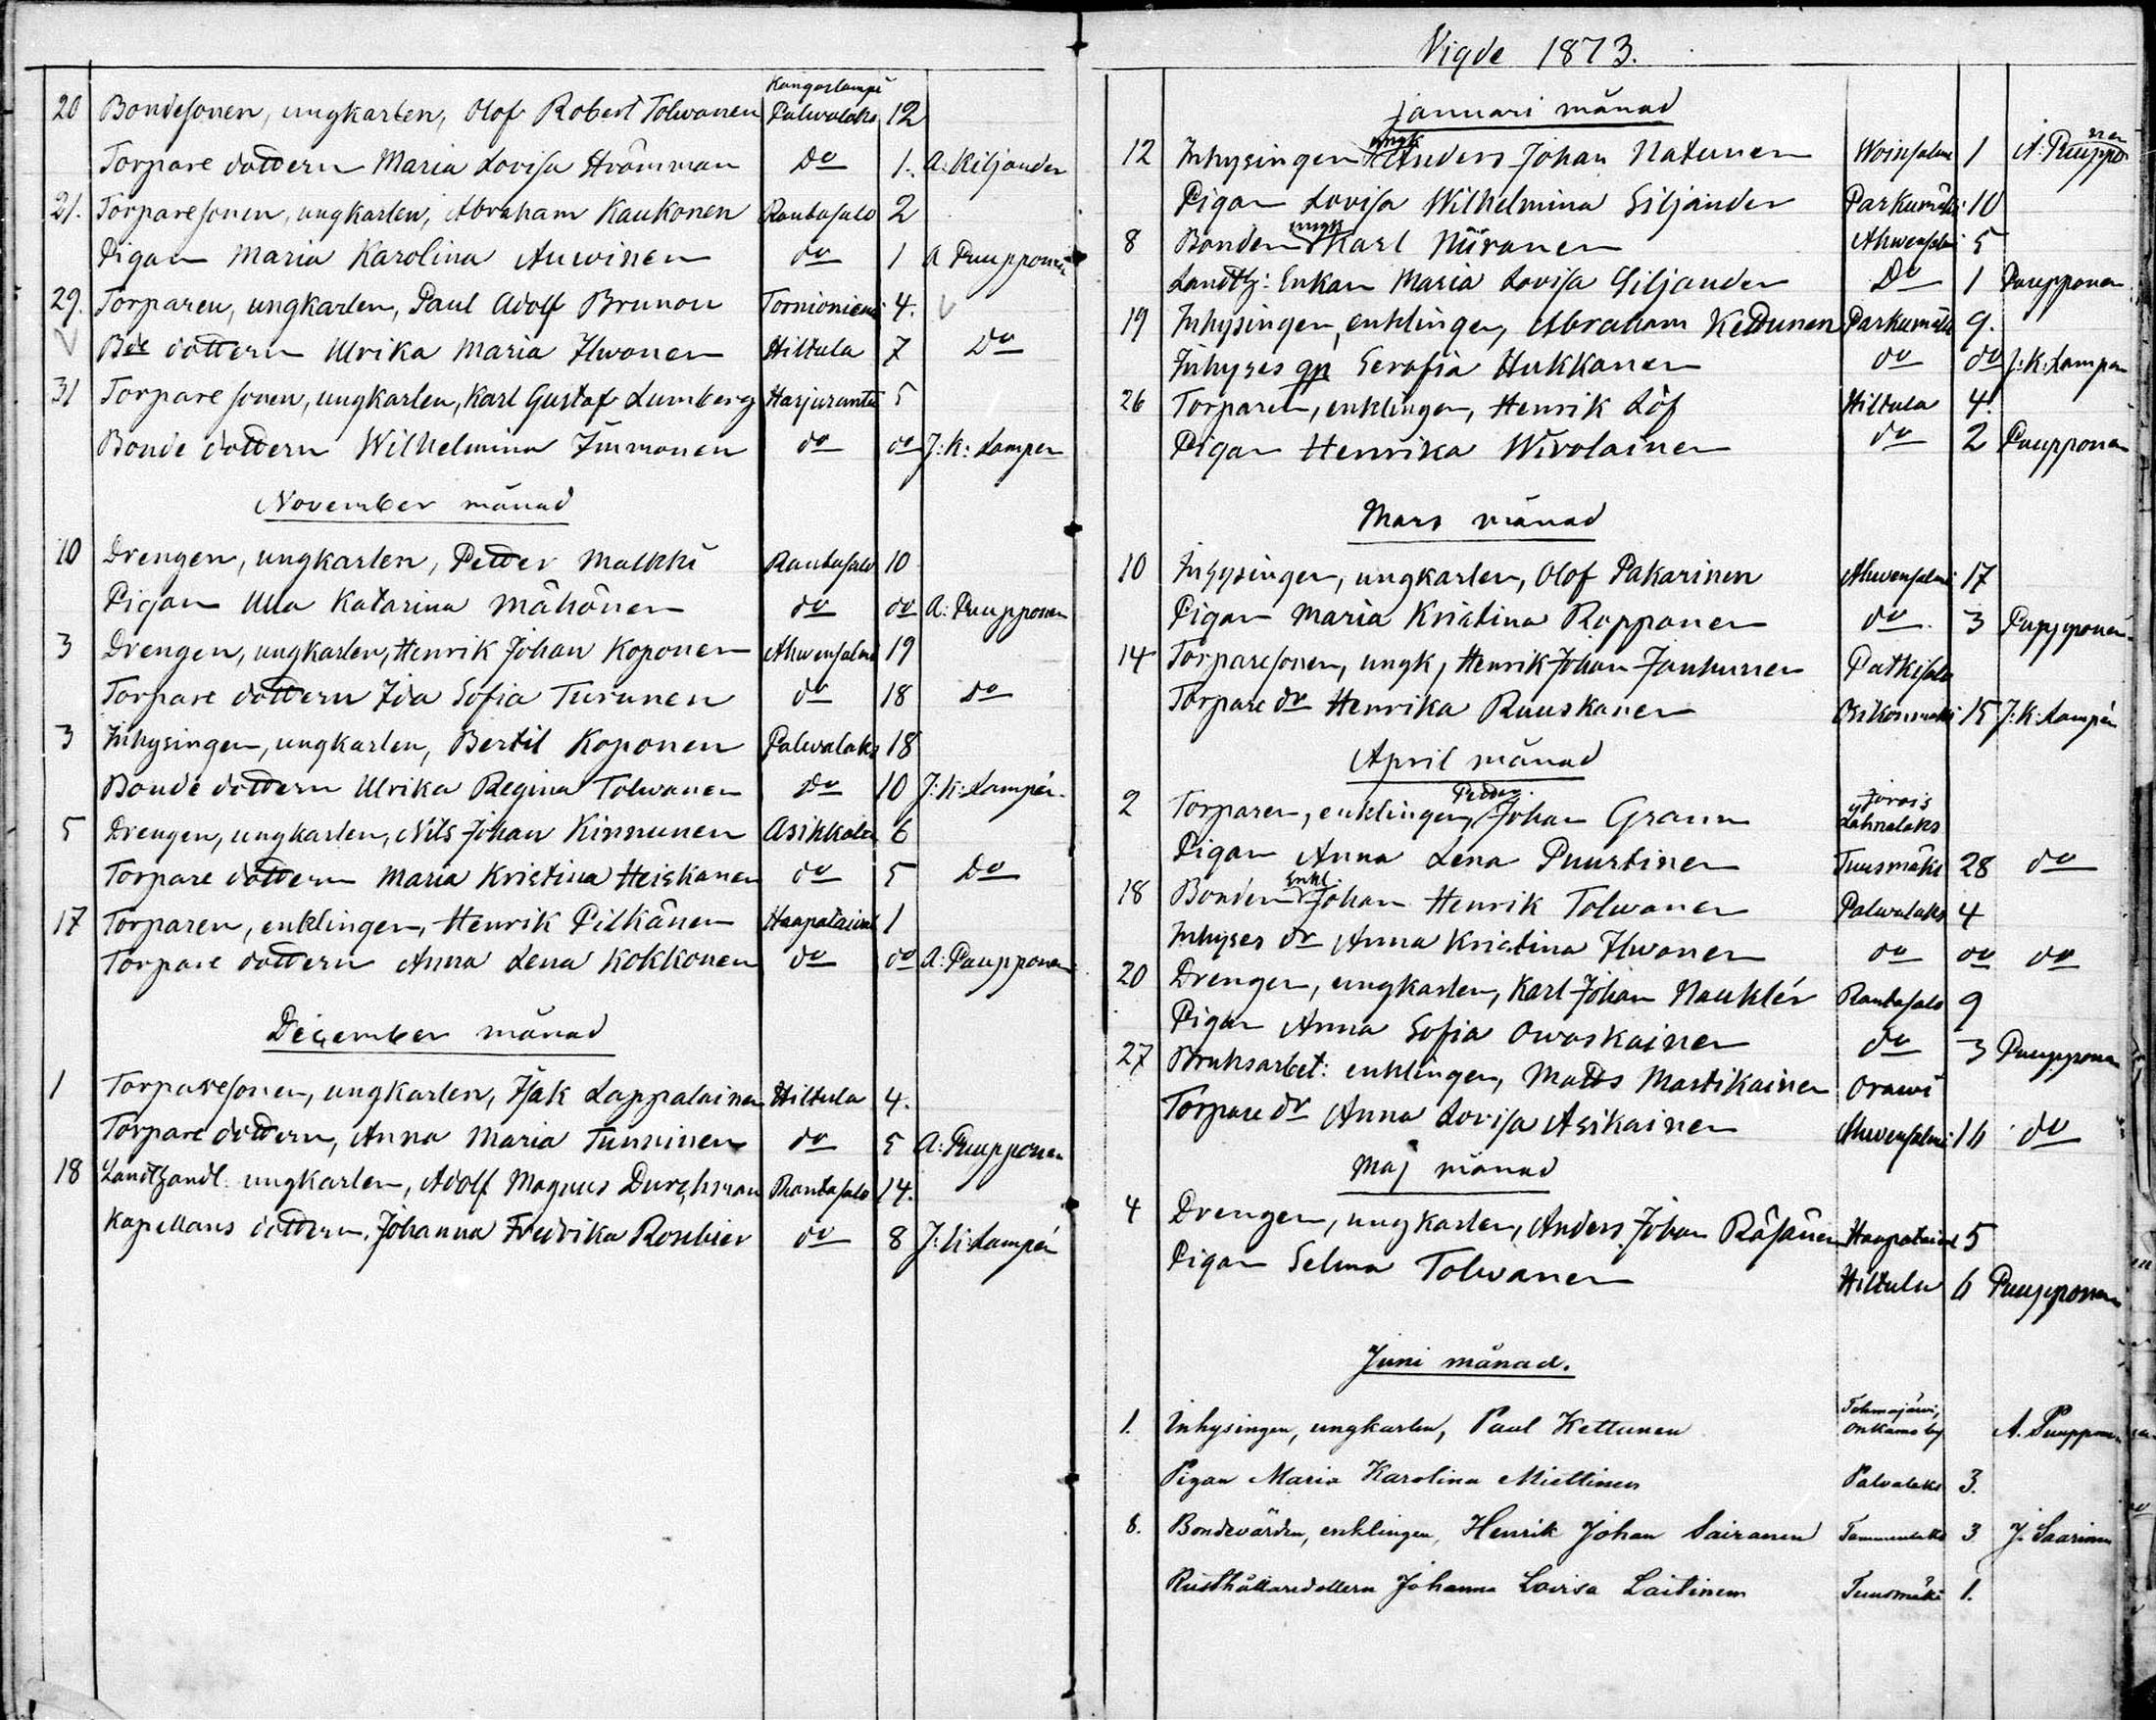 Kangaslampi
20 Bondesonen, ungkarlen, Olof Robert Tolwanen Palwalaks 12
Torpare dottern Maria Lovisa Strömman Do 1. A: Kiljander
21. Torparesonen, ungkarlen, Abraham Kaukonen Rantasalo 2
Pigan Maria Karolina Auwinen do 1 A Puupponen
29. Torparen, ungkarlen, Paul Adolf Brunou Tornioniemi 4.
Bde dottern Ulrika Maria Ihwonen Hiltula 7 Do
31 Torpare sonen, ungkarlen, Karl Gustaf Lumberg Harjuranta 5
Bonde dottern Wilhelmina Immonen do do J: K: Lampen
November månad
10 Drengen, ungkarlen, Petter Malkki Rantasalo 10
Pigan Ulla Katarina Mähönen do do A: Puupponen
3 Drengen, ungkarlen, Henrik Johan Koponen Ahwensalmi 19
Torpare dottern Ida Sofia Turunen do 18 Do
3 Inhysingen, ungkarlen, Bertil Koponen Palwalaks 18
Bonde dottern Ulrika Regina Tolwanen Do 10 J: K: Lampén
5 Drengen, ungkarlen, Nils Johan Kinnunen Asikkala 6
Torpare dottern Maria Kristina Heiskanen do 5 Do
17 Torparen, enklingen, Henrik Pitkänen Haapataival 1
Torpare dottern Anna Lena Kokkonen do do A: Puupponen
December månad
1 Torparesonen, ungkarlen, Isak Lappalainen Hiltula 4.
Torpare dottern, Anna Maria Tunninen do 5 A: Puupponen
18 Landthandl. ungkarlen, Adolf Magnus Durchman Rantasalo 14.
Kapellans dottern, Johanna Fredrika Rosebier do 8 J: K: Lampén
Vigde 1873.
Januari månad
12 Inhysingen ungk Anders Johan Natunen Woinsalmi 1 A: Puupponen
Pigan Lovisa Wilhelmina Siljander Parkumäki 10
8 Bonden ungk Karl Niiranen Ahwensalmi 5
Landtbj: Enkan Maria Lovisa Siljander Do 1 Puupponen
19 Inhysingen, enklingen, Abraham Kettunen Parkumäki 9.
Inhyses qp Serafia Hukkanen do do J: K: Lampen
26 Torparen, enklingen, Henrik Löf Hiltula 4.
Pigan Henrika Wivolainen do 2 Puupponen
Mars månad
10 Inhysingen, ungkarlen, Olof Pakarinen Ahwensalmi 17
Pigan Maria Kristina Ropponen do 3 Puupponen
14 Torparesonen, ungk, Henrik Johan Janhunen Patkisalo
Torpare dr Henrika Ruuskanen Osikonmäki 15 J: K: Lampén
April månad
2 Torparen, enklingen, Petter Johan Grann Jorois Lahnalaks
Pigan Anna Lena Puurtinen Tuusmäki 28 do
18 Bonden Enkl. Johan Henrik Tolwanen Palwalaks 4
Inhyses dr Anna Kristina Ihwonen do do do
20 Drengen, ungkarlen, Karl Johan Nauklér Rantasalo 9
Pigan Anna Sofia Owaskainen do 3 Puupponen
27 Bruksarbet: enklingen, Matts Martikainen Orawi
Torpare dr Anna Lovisa Asikainen Ahwensalmi 16 do
Maj månad
4 Drengen, ungkarlen, Anders Johan Räsänen Haapataival 5
Pigan Selma Tolwanen Hiltula 6 Puupponen
Juni månad.
1. Inhysingen, ungkarlen, Paul Kettunen Tohmajärvi, Onkamo by A. Puupponen
Pigan Maria Karolina Miettinen Palvalaks 3.
8. Bondevärden, enklingen, Henrik Johan Sairanen 3 J. Saarinen
Rusthållaredottern Johanna Lovisa Laitinen Tuusmäki 1.